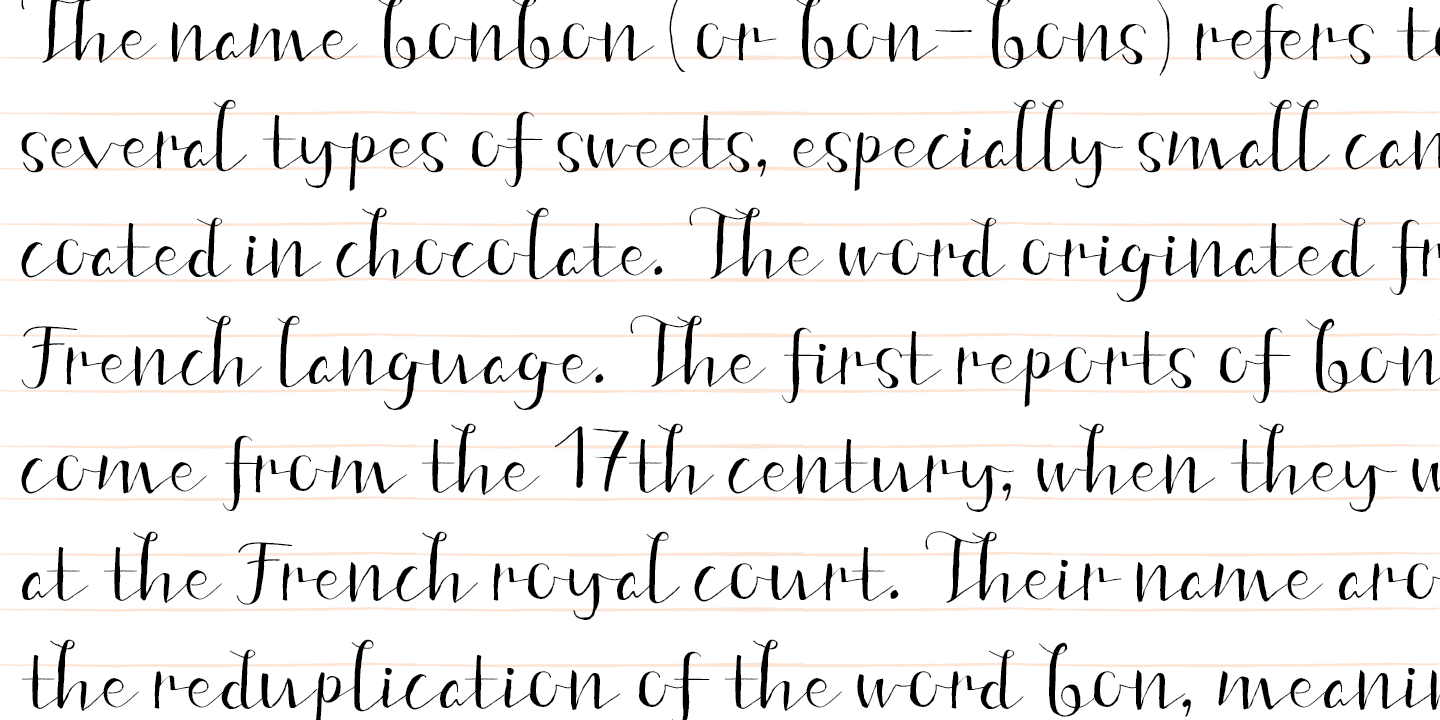 The name bonbon (or bon-bons) refers to
several types of sweets, especially small can
coated in chocolate. The word originated fr
French language. The first reports of bon
come from the 17th century, when they w
at the French royal court. Their name aro
the reduplication of the word bon, meanin